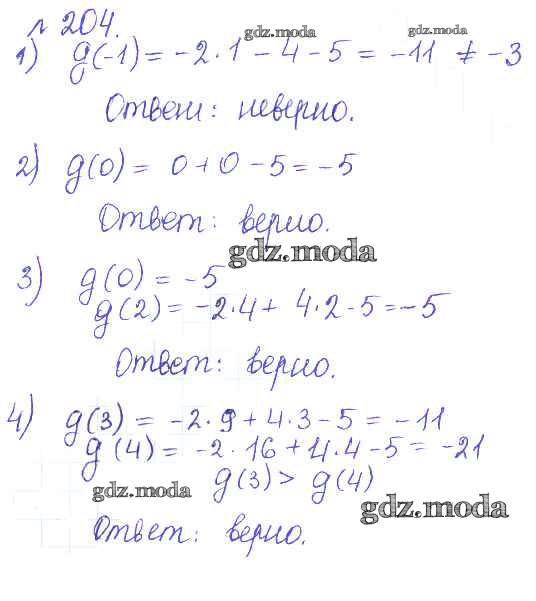 № 204.
gdz.moda gdz.moda
1) g(-1) = -2·1 - 4 - 5 = -11 ≠ -3
Ответ: неверно.
2) g(0) = 0 + 0 - 5 = -5
Ответ: верно.
gdz.moda
3) g(0) = -5
g(2) = -2·4 + 4·2 - 5 = -5
Ответ: верно.
4) g(3) = -2·9 + 4·3 - 5 = -11
g(4) = -2·16 + 4·4 - 5 = -21
g(3) > g(4)
gdz.moda
gdz.moda
Ответ: верно.